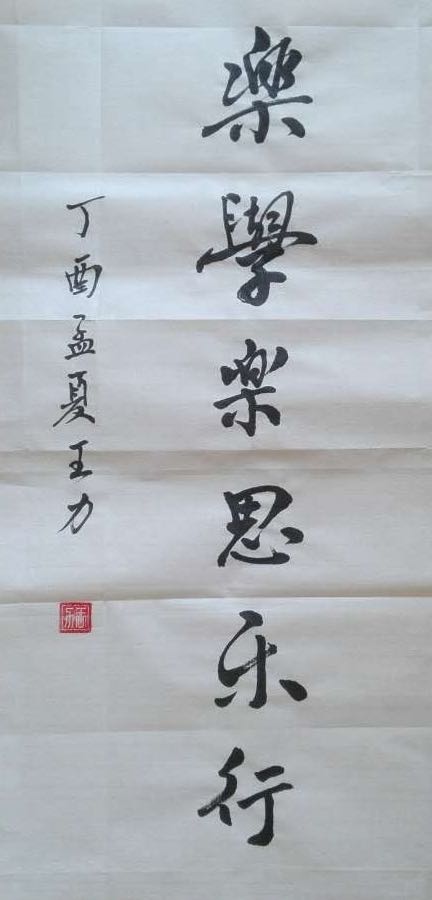 樂學樂思乐行
丁酉孟夏王力